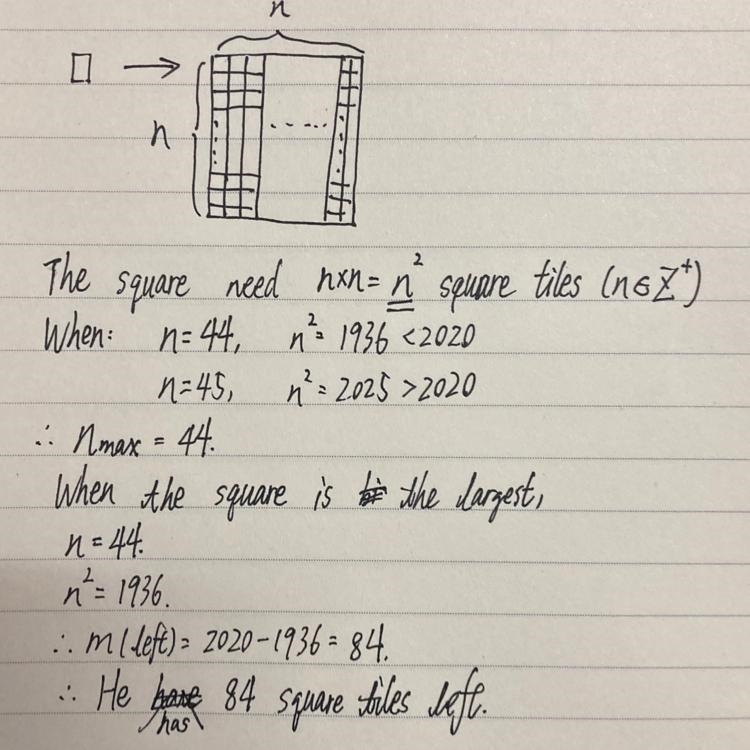 n
n
The square need n×n = n² square tiles (n∈Z⁺)
When: n=44, n²= 1936 <2020
n=45, n²= 2025 >2020
∴ nmax = 44.
When the square is the largest,
n = 44.
n²= 1936.
∴ m(left)= 2020-1936= 84.
∴ He has 84 square tiles left.